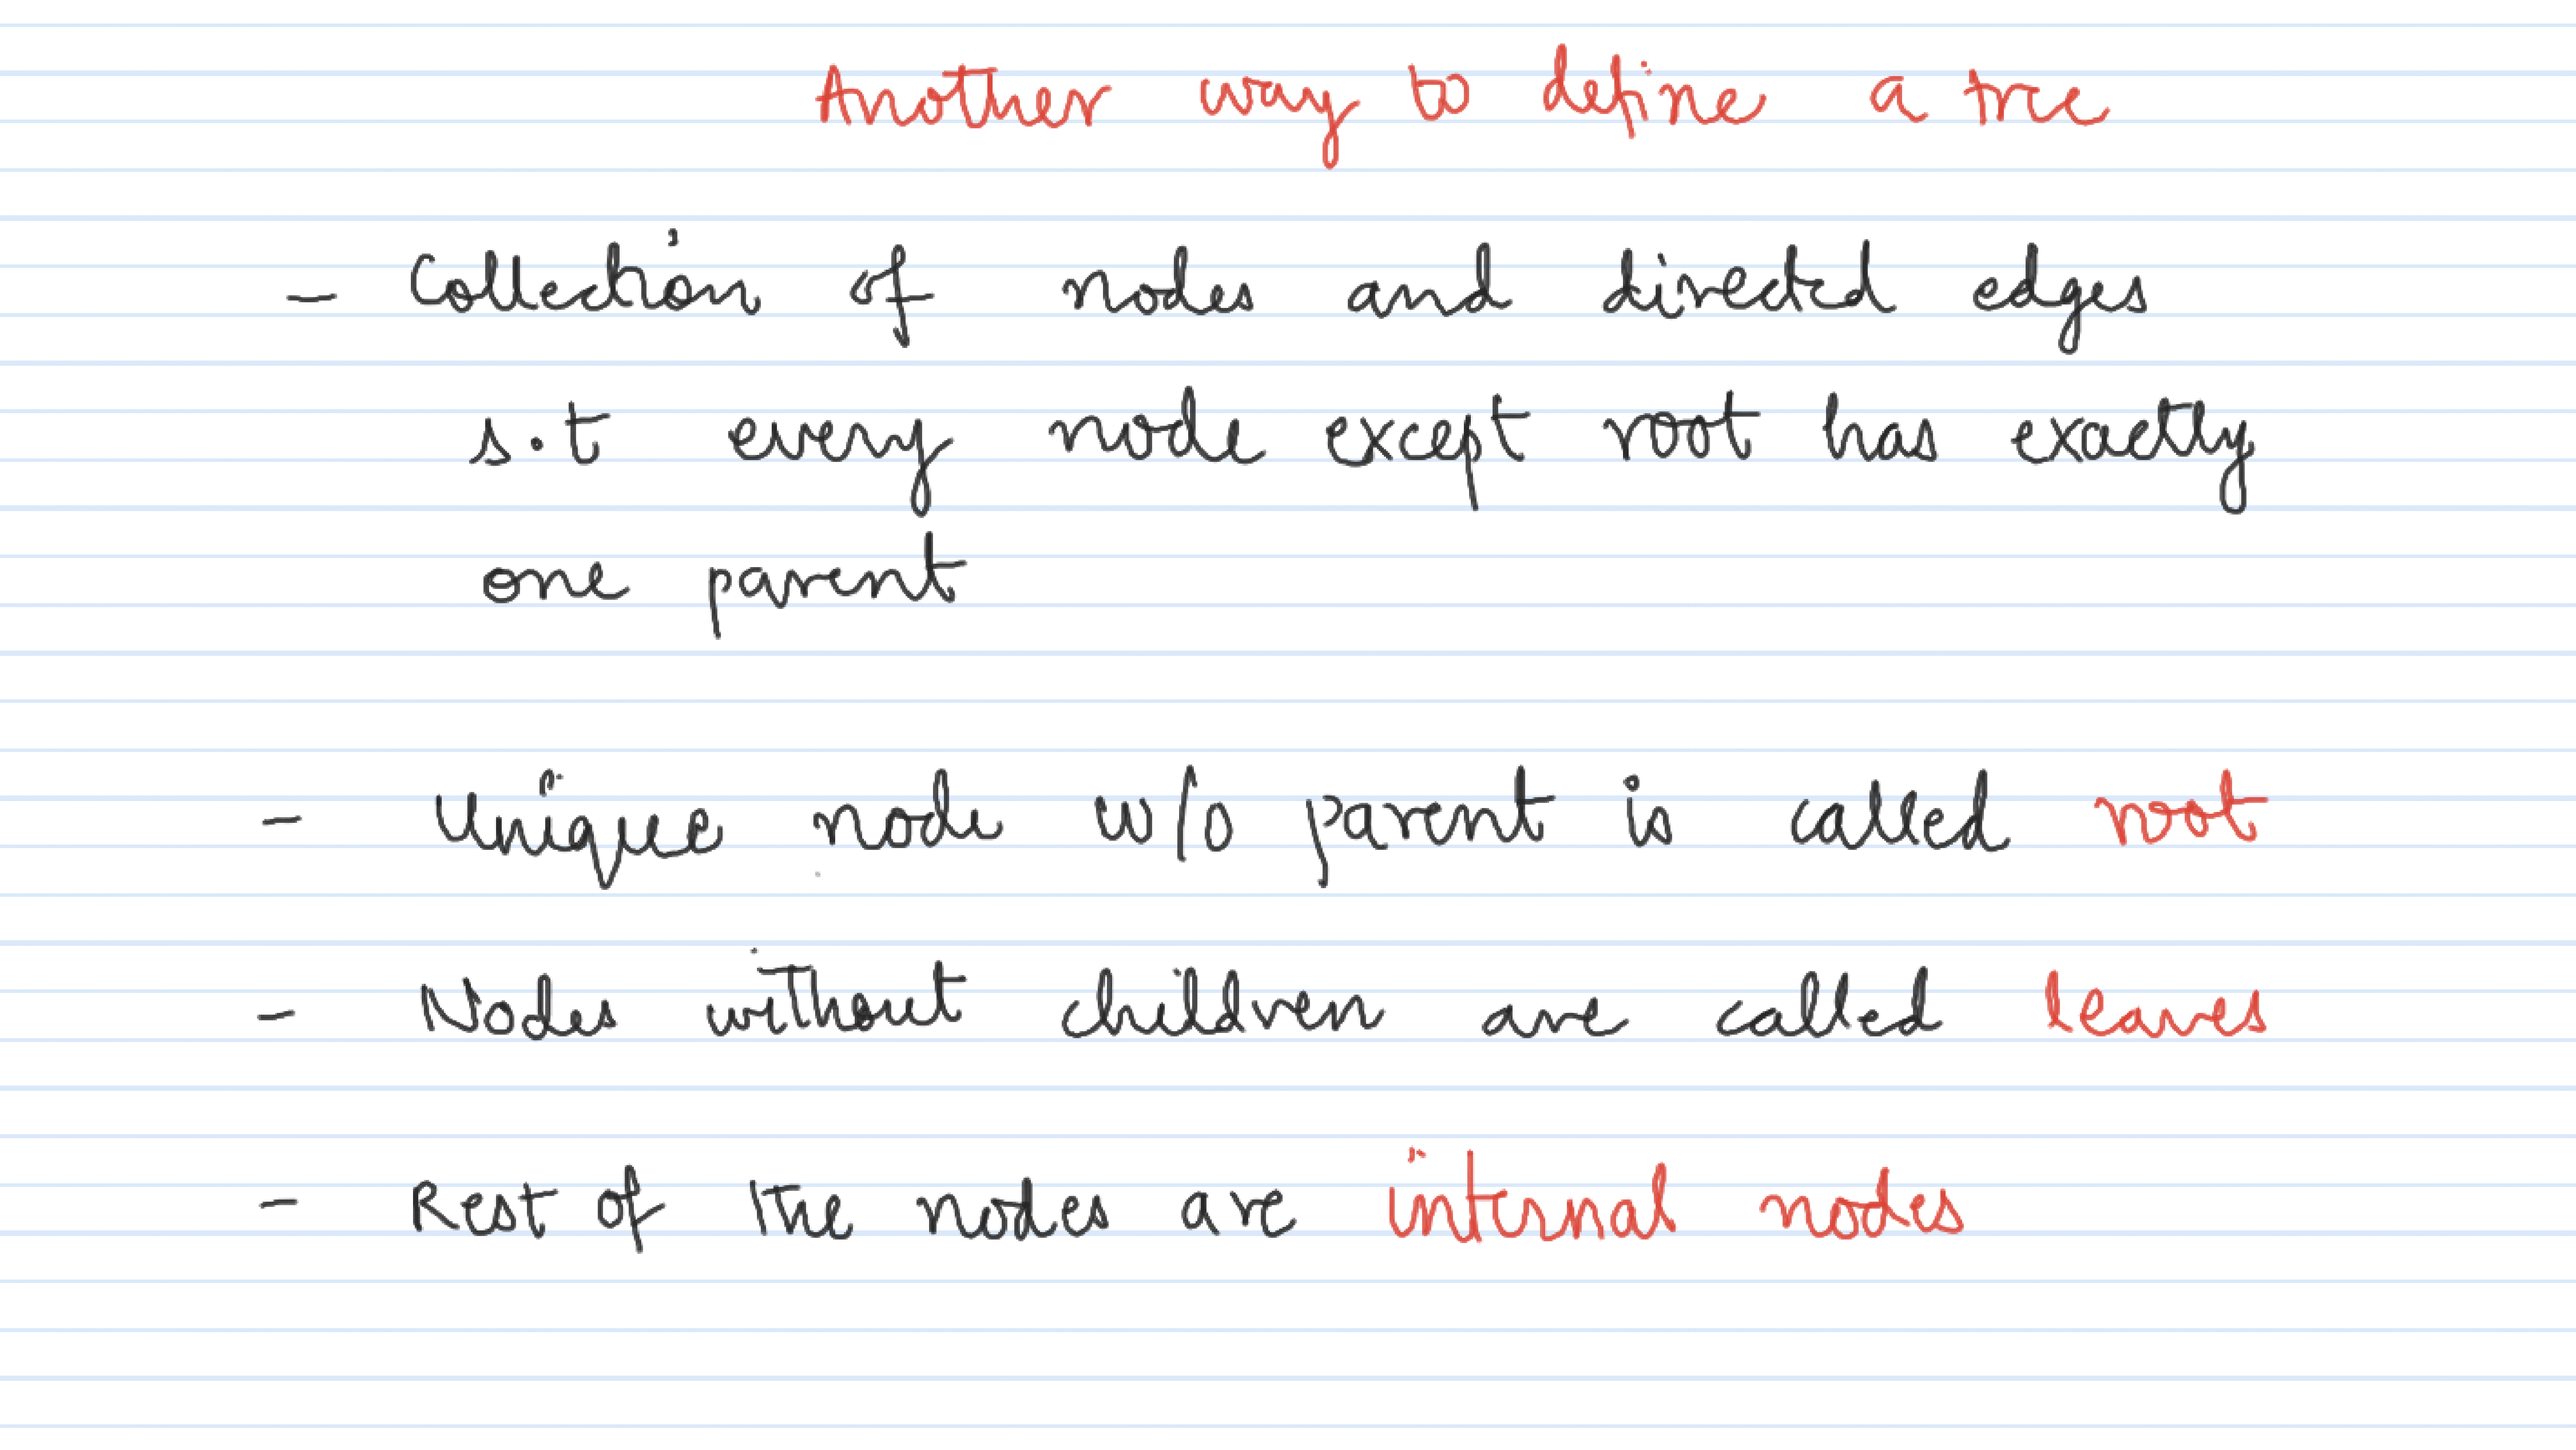 Another way to define a tree
- Collection of nodes and directed edges
s.t every node except root has exactly
one parent
- Unique node w/o parent is called root
- Nodes without children are called leaves
- Rest of the nodes are internal nodes